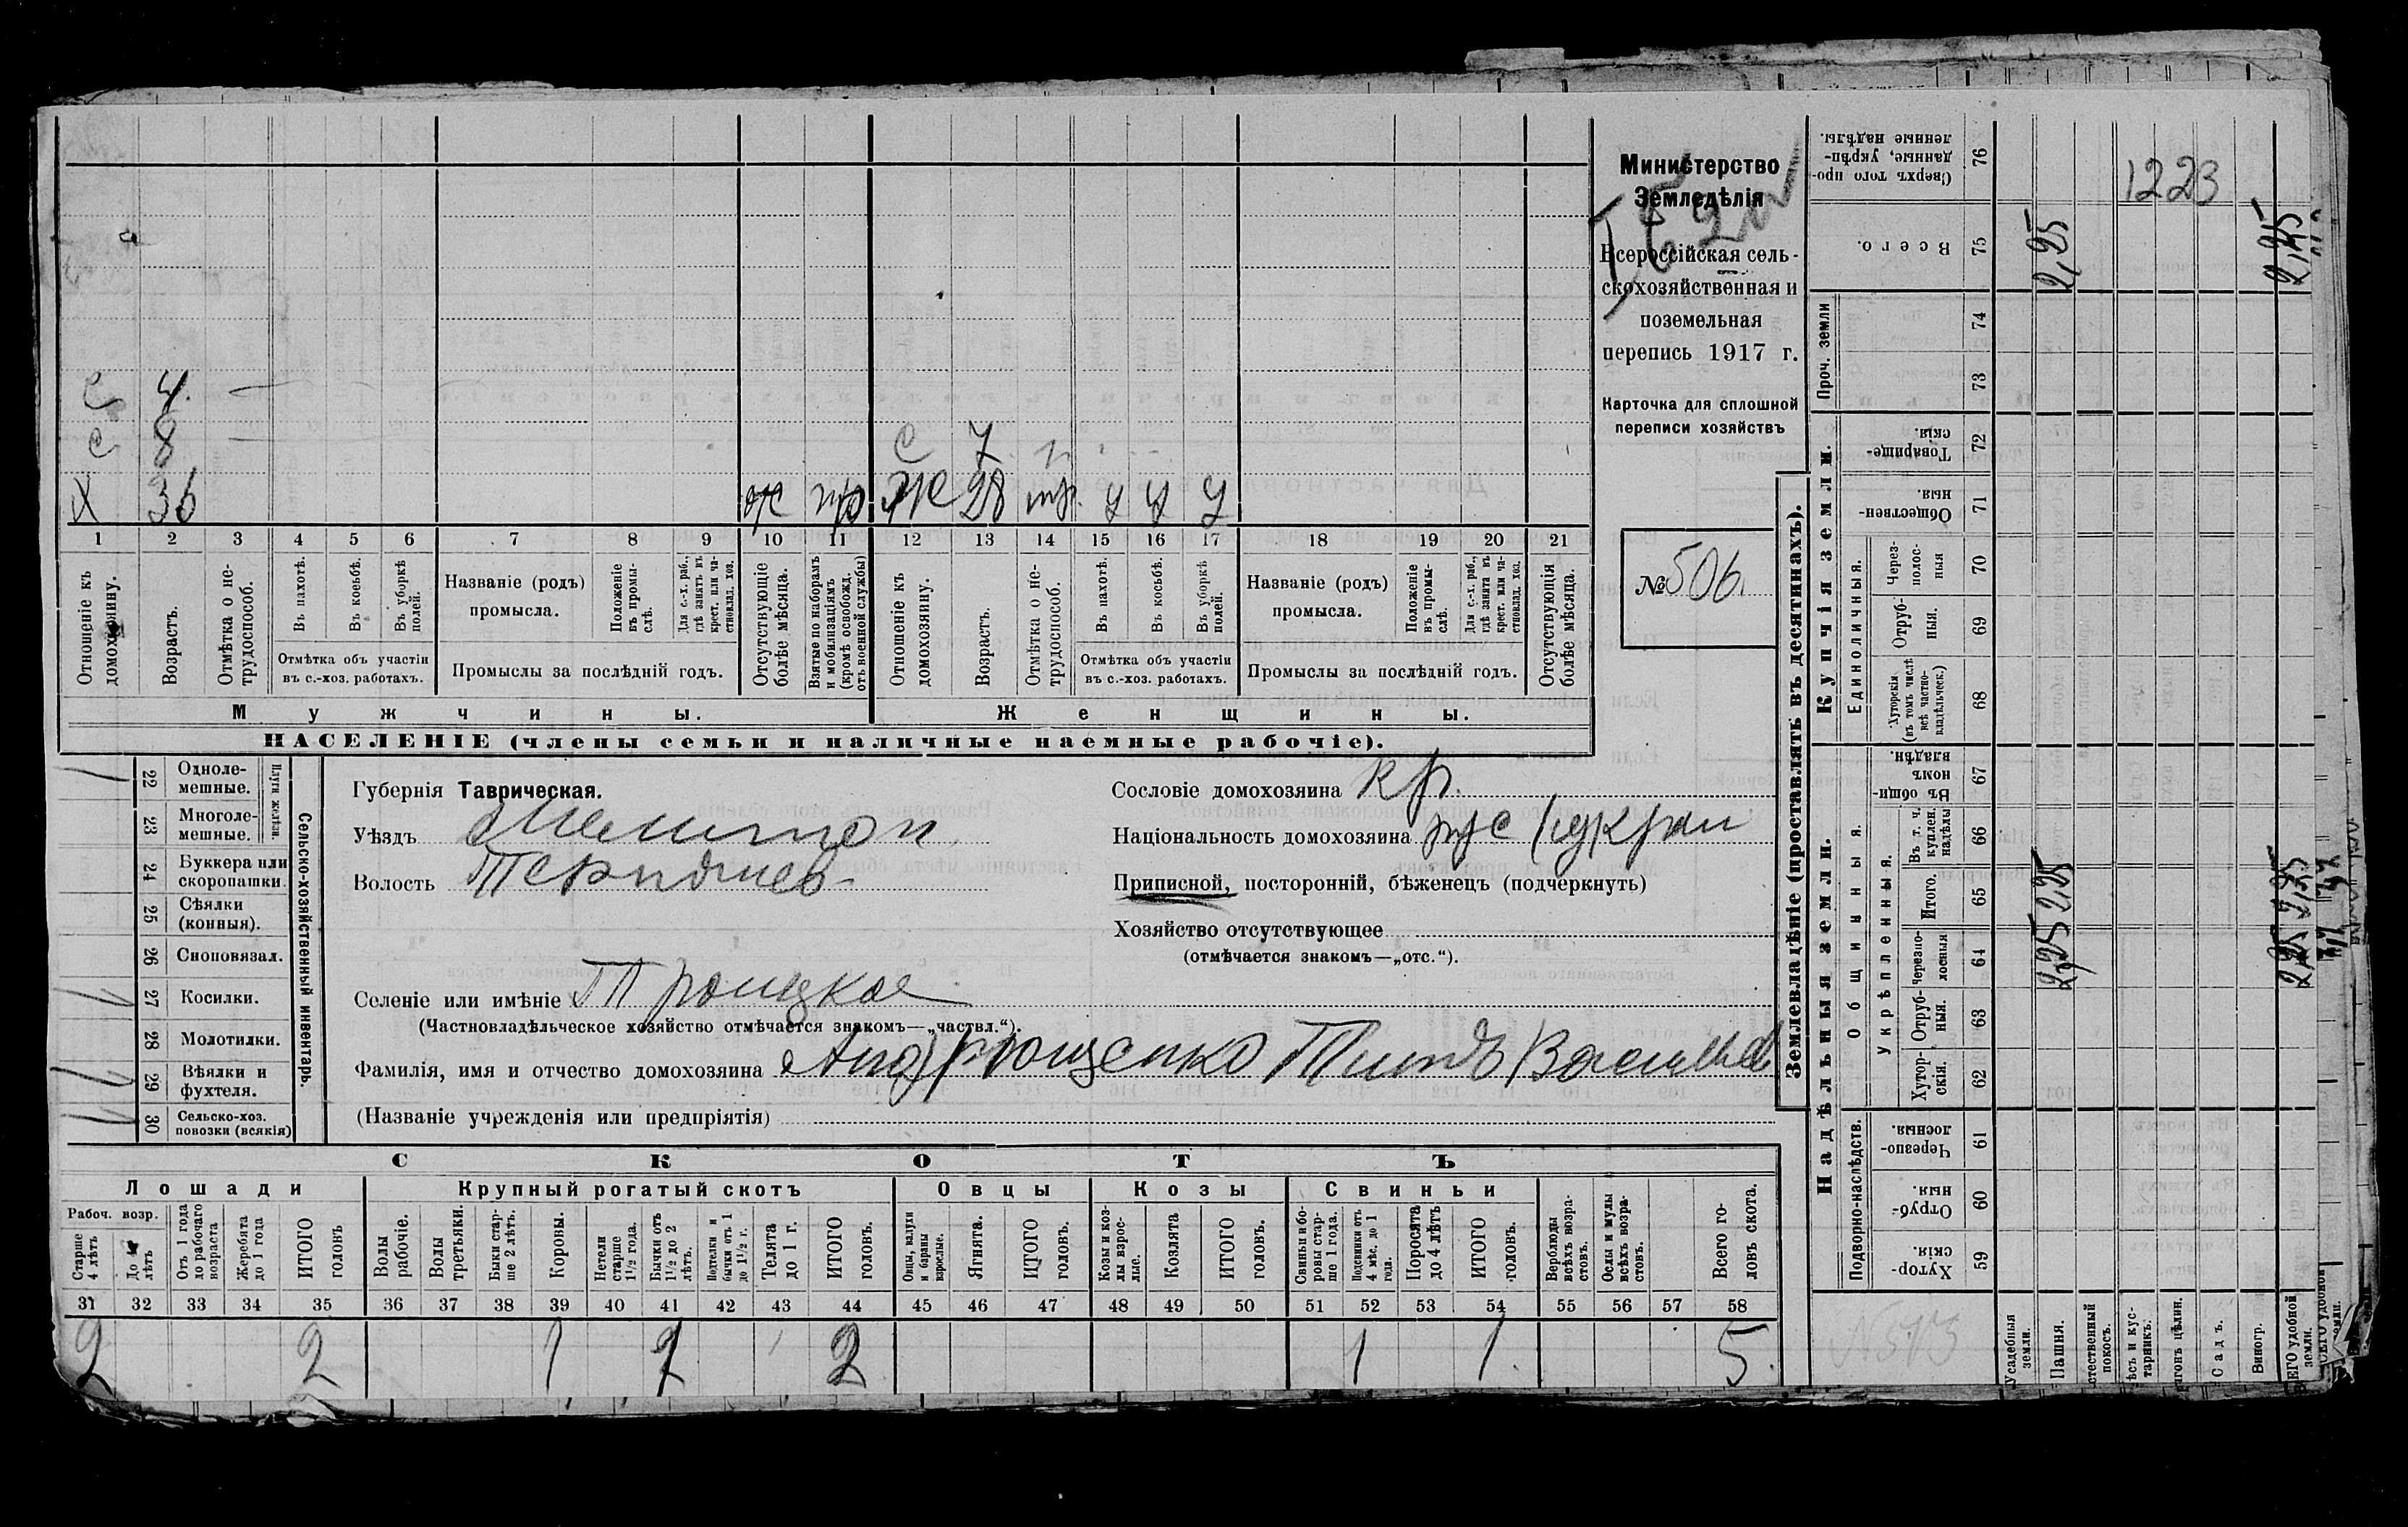 Министерство
Земледѣлія
Всероссійская сель-
скохозяйственная и
поземельная
перепись 1917 г.
Карточка для сплошной
переписи хозяйствъ
№ 506.
С 4. —
С 8 — С 7
Х 36 тр. У У У
Ж 28
1 2 3 4 5 6 7 8 9 10 11 12 13 14 15 16 17 18 19 20 21
Отношеніе къ домохозяину.
Возрастъ.
Отмѣтка о не-трудоспособ.
Въ пахотѣ.
Въ косьбѣ.
Въ уборкѣ полей.
Отмѣтка объ участіи
въ с.-хоз. работахъ.
Названіе (родъ)
промысла.
Положеніе въ промы-слѣ.
Для с.-х. раб., гдѣ занятъ въ крест. или ча-стновлад. хоз.
Промыслы за послѣдній годъ.
Отсутствующіе болѣе мѣсяца.
Взятые по наборамъ и мобилизаціямъ (кромѣ освобожд. отъ военной службы)
Отношеніе къ домохозяину.
Возрастъ.
Отмѣтка о не-трудоспособ.
Въ пахотѣ.
Въ косьбѣ.
Въ уборкѣ полей.
Отмѣтка объ участіи
въ с.-хоз. работахъ.
Названіе (родъ)
промысла.
Положеніе въ промы-слѣ.
Для с.-х. раб., гдѣ занята въ крест. или ча-стновлад. хоз.
Промыслы за послѣдній годъ.
Отсутствующія болѣе мѣсяца.
Мужчины.
Женщины.
НАСЕЛЕНІЕ (члены семьи и наличные наемные рабочіе).
22 Одноле-мешные.
23 Многоле-мешные.
Плуги желѣзн.
24 Буккера или скоропашки.
25 Сѣялки (конныя).
26 Сноповязал.
27 Косилки.
28 Молотилки.
29 Вѣялки и фухтеля.
30 Сельско-хоз. повозки (всякія)
Сельско-хозяйственный инвентарь.
Губернія Таврическая.
Уѣздъ Мелитоп.
Волость
Селеніе или имѣніе Троицкое
(Частновладѣльческое хозяйство отмѣчается знакомъ—„частвл.“).
Фамилія, имя и отчество домохозяина Андрющенко Титъ Васильев
(Названіе учрежденія или предпріятія)
Сословіе домохозяина кр.
Національность домохозяина рус (украи
Приписной, посторонній, бѣженецъ (подчеркнуть)
Хозяйство отсутствующее
(отмѣчается знакомъ—„отс.“).
СКОТЪ
Лошади
Крупный рогатый скотъ
Овцы
Козы
Свиньи
Рабоч. возр.
Старше 4 лѣтъ
До 4 лѣтъ
Отъ 1 года до рабочаго возраста
Жеребята до 1 года
ИТОГО головъ
Волы рабочіе.
Волы третьяки.
Быки стар-ше 2 лѣтъ.
Коровы.
Нетели старше 1½ года.
Бычки отъ 1½ до 2 лѣтъ.
Подтелки и бычки отъ 1 до 1½ г.
Телята до 1 г.
ИТОГО головъ.
Овцы, валухи и бараны взрослые.
Ягнята.
ИТОГО головъ.
Козы и коз-лы взрос-лые.
Козлята
ИТОГО головъ.
Свиньи и бо-ровы стар-ше 1 года.
Подсвинки отъ 4 мѣс. до 1 года.
Поросята до 4 лѣтъ
ИТОГО головъ.
Верблюды всѣхъ возра-стовъ.
Ослы и мулы всѣхъ возра-стовъ.
Всего го-ловъ скота.
31 32 33 34 35 36 37 38 39 40 41 42 43 44 45 46 47 48 49 50 51 52 53 54 55 56 57 58
2 2 1 2 1 1 5.
Землевладѣніе (проставлять въ десятинахъ).
Надѣльныя земли.
Купчія земли.
Проч. земли
Подворно-наслѣдств.
Общинныя.
Укрѣпленныя.
Единоличныя.
59 Хутор-скія.
60 Отруб-ныя.
61 Черезпо-лосныя.
62 Хутор-скія.
63 Отруб-ныя.
64 Черезпо-лосныя
65 Итого.
66 Въ т. ч. куплен. надѣлы
67 Въ общин-номъ владѣн.
68 Хуторскія (въ томъ числѣ всѣ частно-владѣльческ.)
69 Отруб-ныя.
70 Через-полос-ныя
71 Обществен-ныя.
72 Товарище-скія.
73
74
75 Всего.
76 Сверхъ того про-данные, укрѣп-ленные надѣлы.
Усадебныя земли.
Пашня.
Садъ.
Виногр.
2,25 2,25 2,25
2,25 2,25 2,25
1223